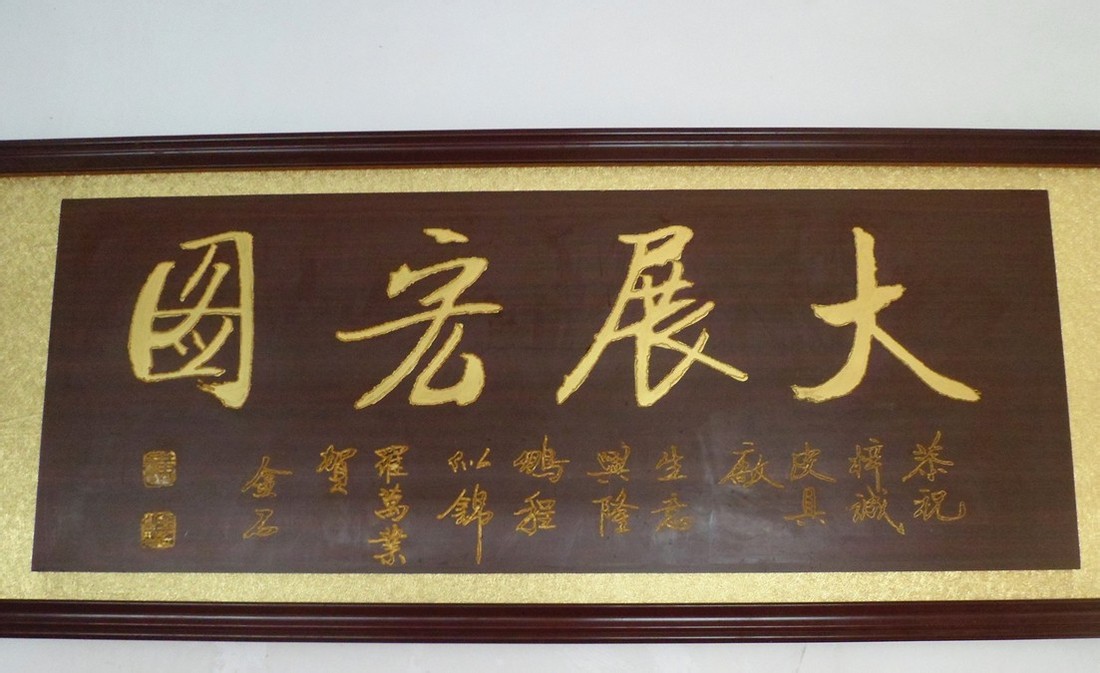 大展宏圖
恭祝
梓誠
皮具
廠
生意
興隆
鵬程
似錦
羅萬業
賀
金石